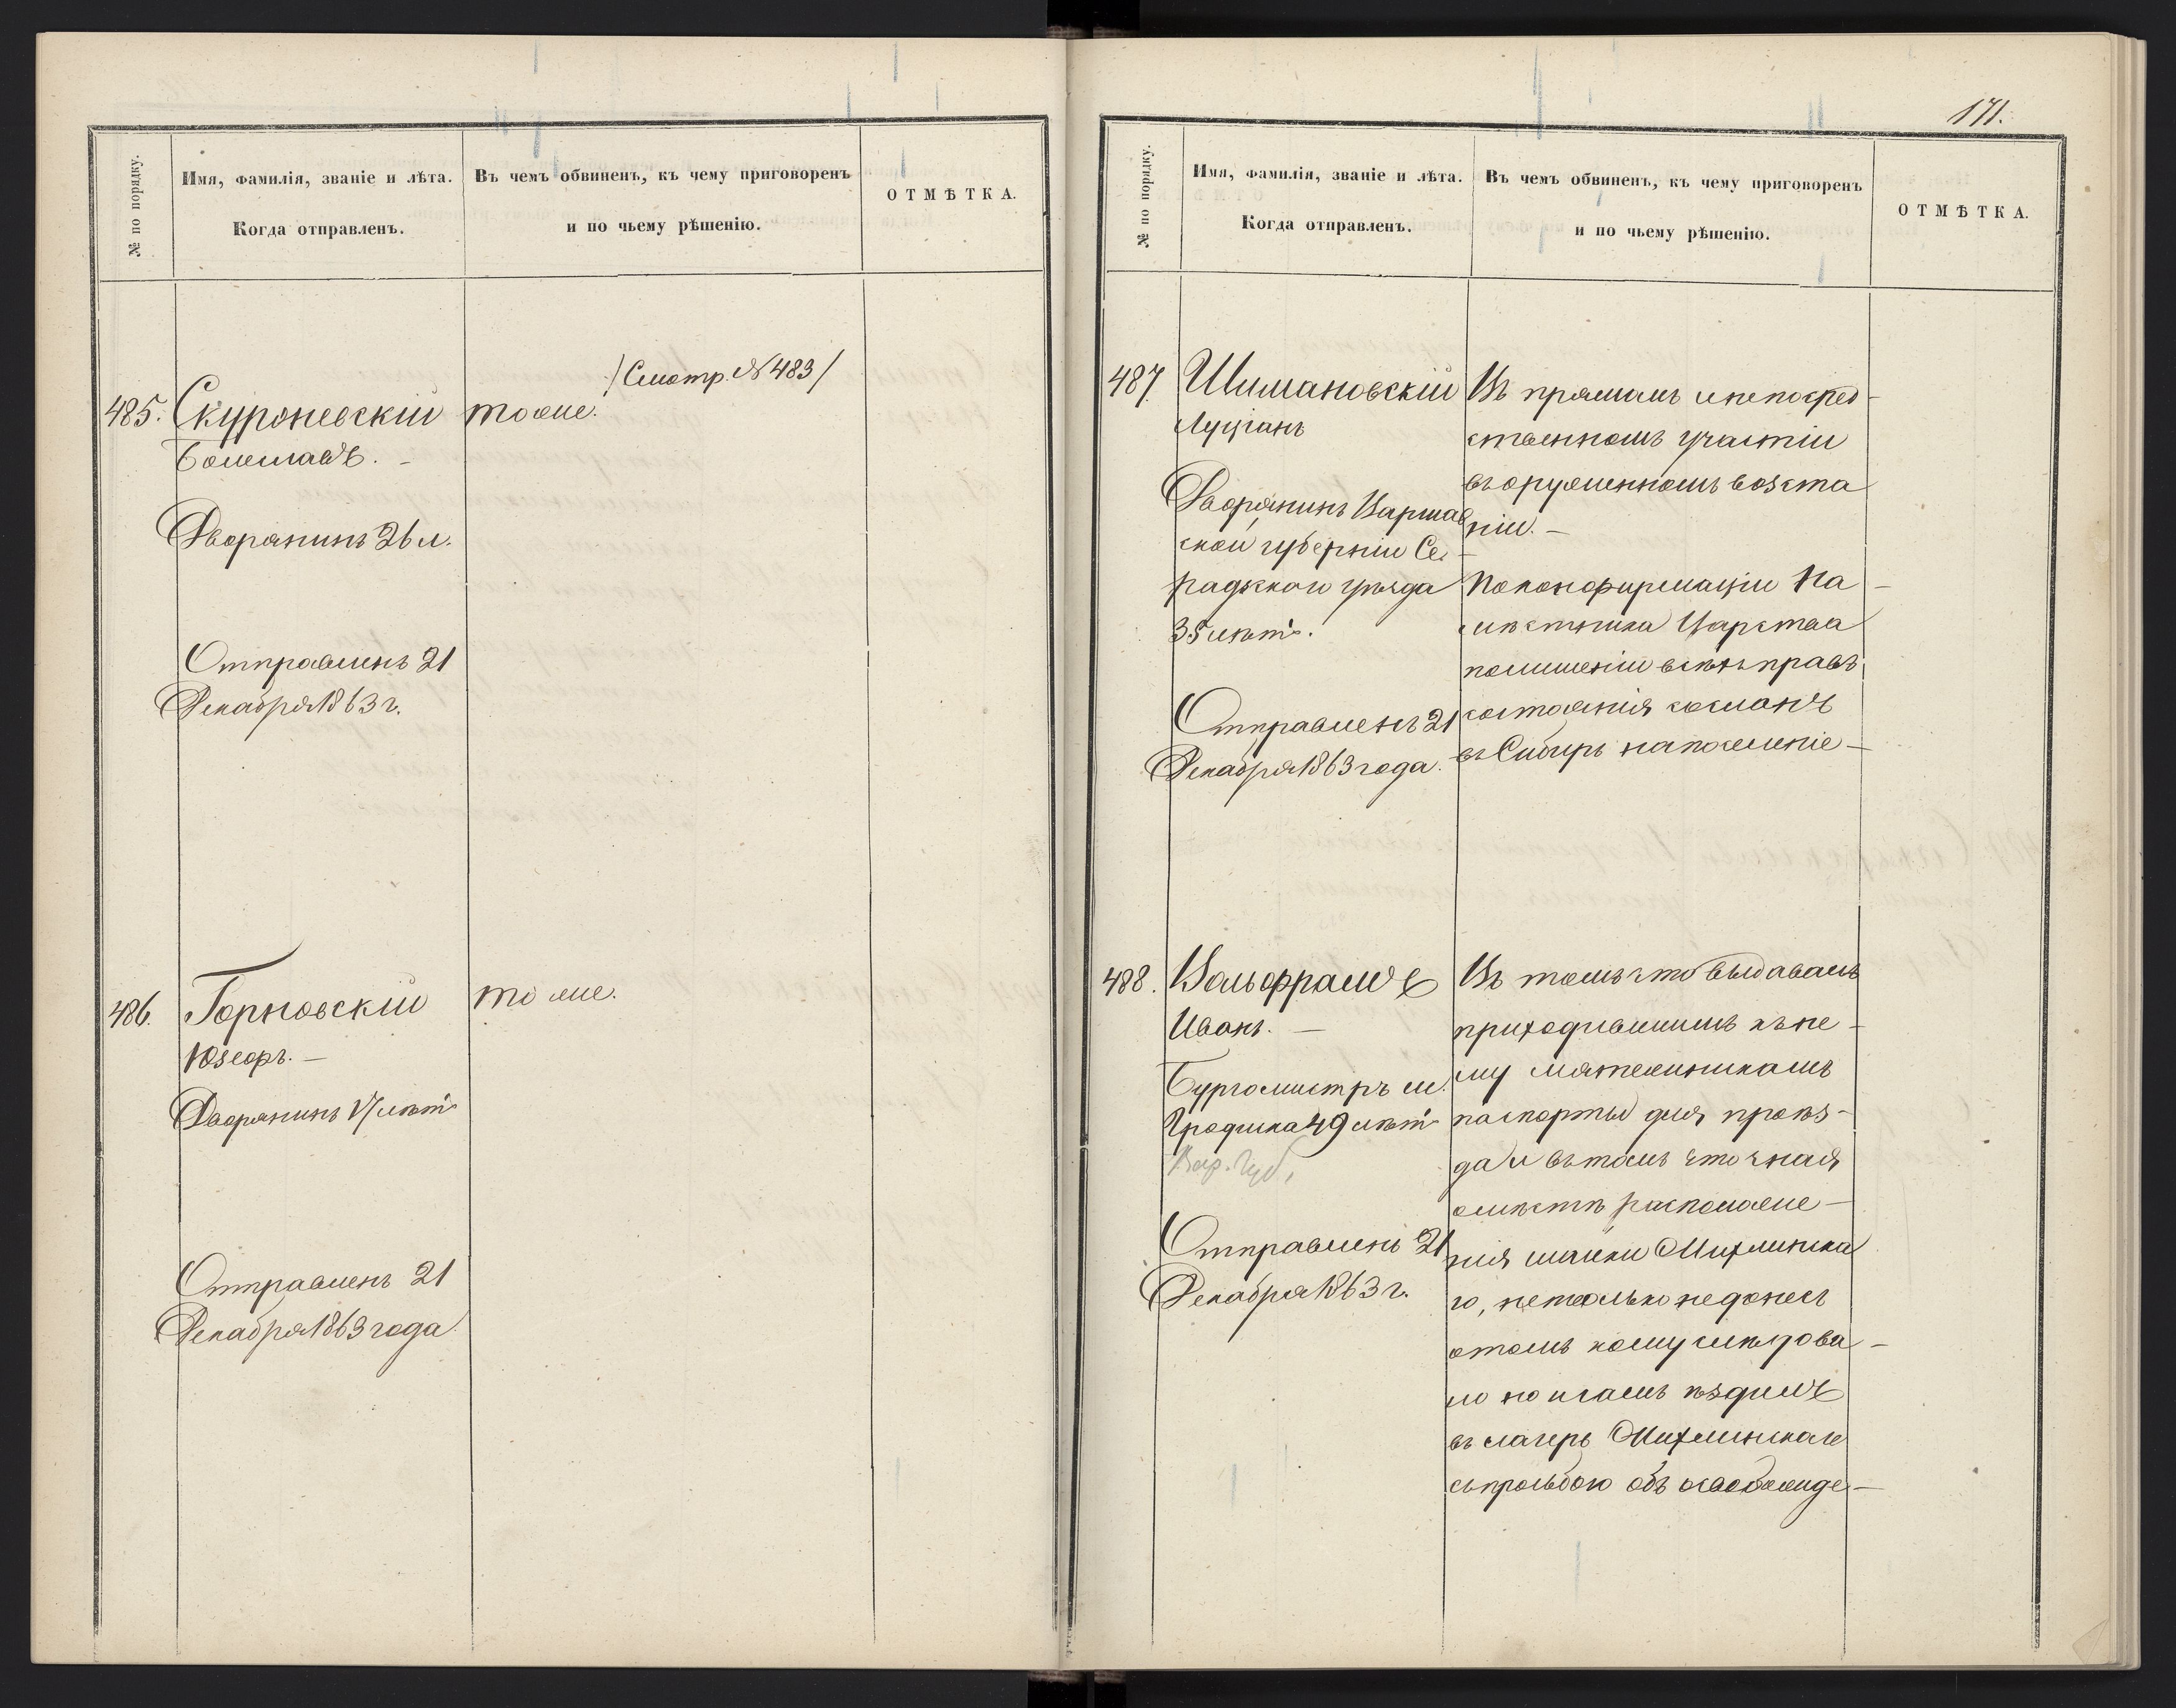 № по порядку.
Имя, фамилія, званіе и лѣта.
Когда отправленъ.
Въ чемъ обвиненъ, къ чему приговоренъ
и по чьему рѣшенію.
ОТМѢТКА.
/Смотр. № 483/
485. Скуроневскій тоже.
Болеславъ. –
Дворянинъ 26 л.
Отправленъ 21
Декабря 1863 г.
486. Горновскій тоже.
Юзефъ. –
Дворянинъ 17 лѣтъ
Отправленъ 21
Декабря 1863 года
171.
№ по порядку.
Имя, фамилія, званіе и лѣта.
Когда отправленъ.
Въ чемъ обвиненъ, къ чему приговоренъ
и по чьему рѣшенію.
ОТМѢТКА.
487. Шимановскій
Луціанъ
Дворянинъ Варшав
ской губерніи Се-
радзкаго уѣзда
35 лѣтъ.
Отправленъ 21
Декабря 1863 года.
Въ прямомъ и непосред-
ственномъ участіи
въ оруженномъ возста
ніи. –
По конфирмаціи На-
мѣстника Царства
по лишеніи всѣхъ правъ
состоянія сосланъ
въ Сибирь на поселеніе –
488. Вольффрамъ
Иванъ. –
Бургомистръ м.
Гродиска 49 лѣтъ
Вар. Губ.
Отправленъ 21
Декабря 1863 г.
Въ томъ что выдавалъ
приходившимъ къ не-
му мятежникамъ
паспорты для проѣз-
да и въ томъ что зная
о мѣстѣ расположе-
нія шайки Михлинска
го, не только не донесъ
о томъ кому слѣдова-
ло но и самъ ѣздилъ
въ лагерь Михлинскаго
съ просьбою объ освобожде-